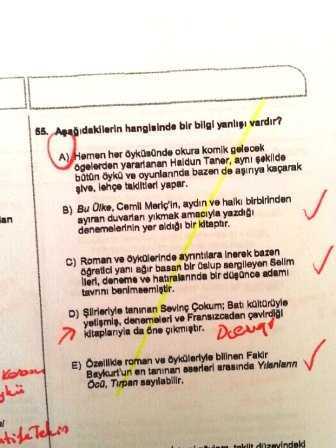 55. Aşağıdakilerin hangisinde bir bilgi yanlışı vardır?
A) Hemen her öyküsünde okura komik gelecek
ögelerden yararlanan Haldun Taner, aynı şekilde
bütün öykü ve oyunlarında bazen de aşırıya kaçarak
şive, lehçe taklitleri yapar.
B) Bu Ülke, Cemil Meriç'in, aydın ve halkı birbirinden
ayıran duvarları yıkmak amacıyla yazdığı
denemelerinin yer aldığı bir kitaptır.
C) Roman ve öykülerinde ayrıntılara inerek bazen
öğretici yanı ağır basan bir üslup sergileyen Selim
İleri, deneme ve hatıralarında bir düşünce adamı
tavrını benimsemiştir.
D) Şiirleriyle tanınan Sevinç Çokum; Batı kültürüyle
yetişmiş, denemeleri ve Fransızcadan çevirdiği
kitaplarıyla da öne çıkmıştır.
E) Özellikle roman ve öyküleriyle bilinen Fakir
Baykurt'un en tanınan eserleri arasında Yılanların
Öcü, Tırpan sayılabilir.